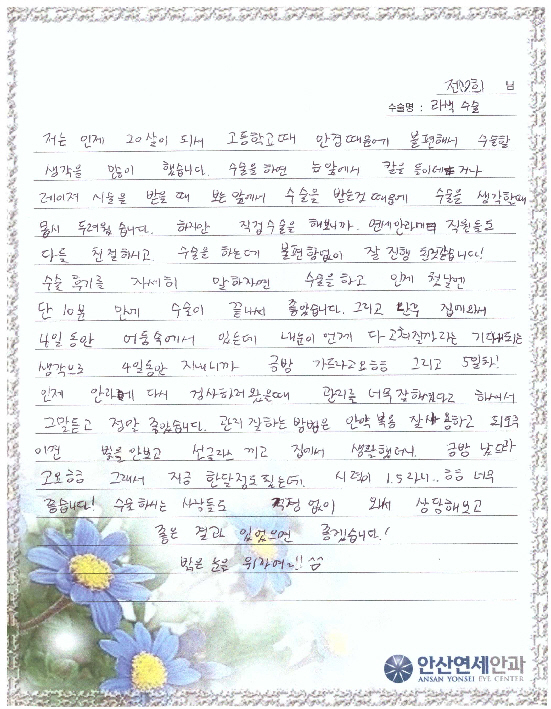 전♡희 님
수술명 : 라섹 수술
저는 인제 20살이 되서 고등학교때 안경때문에 불편해서 수술할
생각을 많이 했습니다. 수술을 하면 눈앞에서 칼을 들이대거나
레이저 시술을 받을 때 보는 앞에서 수술을 받는것 때문에 수술을 생각한때
몹시 두려웠습니다. 하지만 직접수술을 해보니까. 연세안과에 직원분도
다들 친절하시고. 수술을 하는데 불편함없이 잘 진행 됬었습니다!
수술 후기를 자세히 말하자면 수술을 하고 인제 첫날엔
단 10분 만에 수술이 끝나서 좋았습니다. 그리고 집에와서
4일동안 어둠속에서 있는데 내눈이 언제 다고쳐질까라는 기대되는
생각으로 4일동안 지내니까 금방 가드라고요ㅎㅎ 그리고 5일차!
인제 안과에 다시 검사하러왔을때 관리를 너무잘하셨다고 하셔서
그말듣고 정말 좋았습니다. 관리 잘하는 방법은 안약 복용 잘사용하고 되도록
이면 빛을안보고 선글라스 끼고 집에서 생활했더니. 금방 낫드라
고요ㅎㅎ 그래서 지금 한달정도 됬는데. 시력이 1.5라니.. ㅎㅎ 너무
좋습니다! 수술하시는 사람들도 걱정 없이 와서 상담해보고
좋은 결과 있었으면 좋겠습니다!
밝은 눈을 위하여!!
안산연세안과
ANSAN YONSEI EYE CENTER